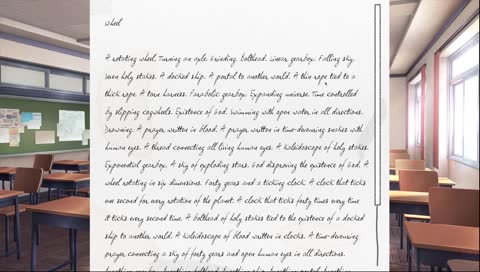 Wheel
A rotating wheel. Turning an axle. Grinding. bolthead. Linear gearbox. Falling sky.
Seven holy stakes. A docked ship. A portal to another world. A thin rope tied to a
thick rope. A torn harness. Parabolic gearbox. Expanding universe. Time controlled
by slipping cogwheels. Existence of God. Swimming with open water in all directions.
Drowning. A prayer written in blood. A prayer written in time-devouring snakes with
human eyes. A thread connecting all living human eyes. A kaleidoscope of holy stakes.
Exponential gearbox. A sky of exploding stars. God disproving the existence of God. A
wheel rotating in six dimensions. Forty gears and a ticking clock. A clock that ticks
one second for every rotation of the planet. A clock that ticks forty times every time
it ticks every second time. A bolthead of holy stakes tied to the existence of a docked
ship to another world. A kaleidoscope of blood written in clocks. A time-devouring
prayer connecting a sky of forty gears and open human eyes in all directions.